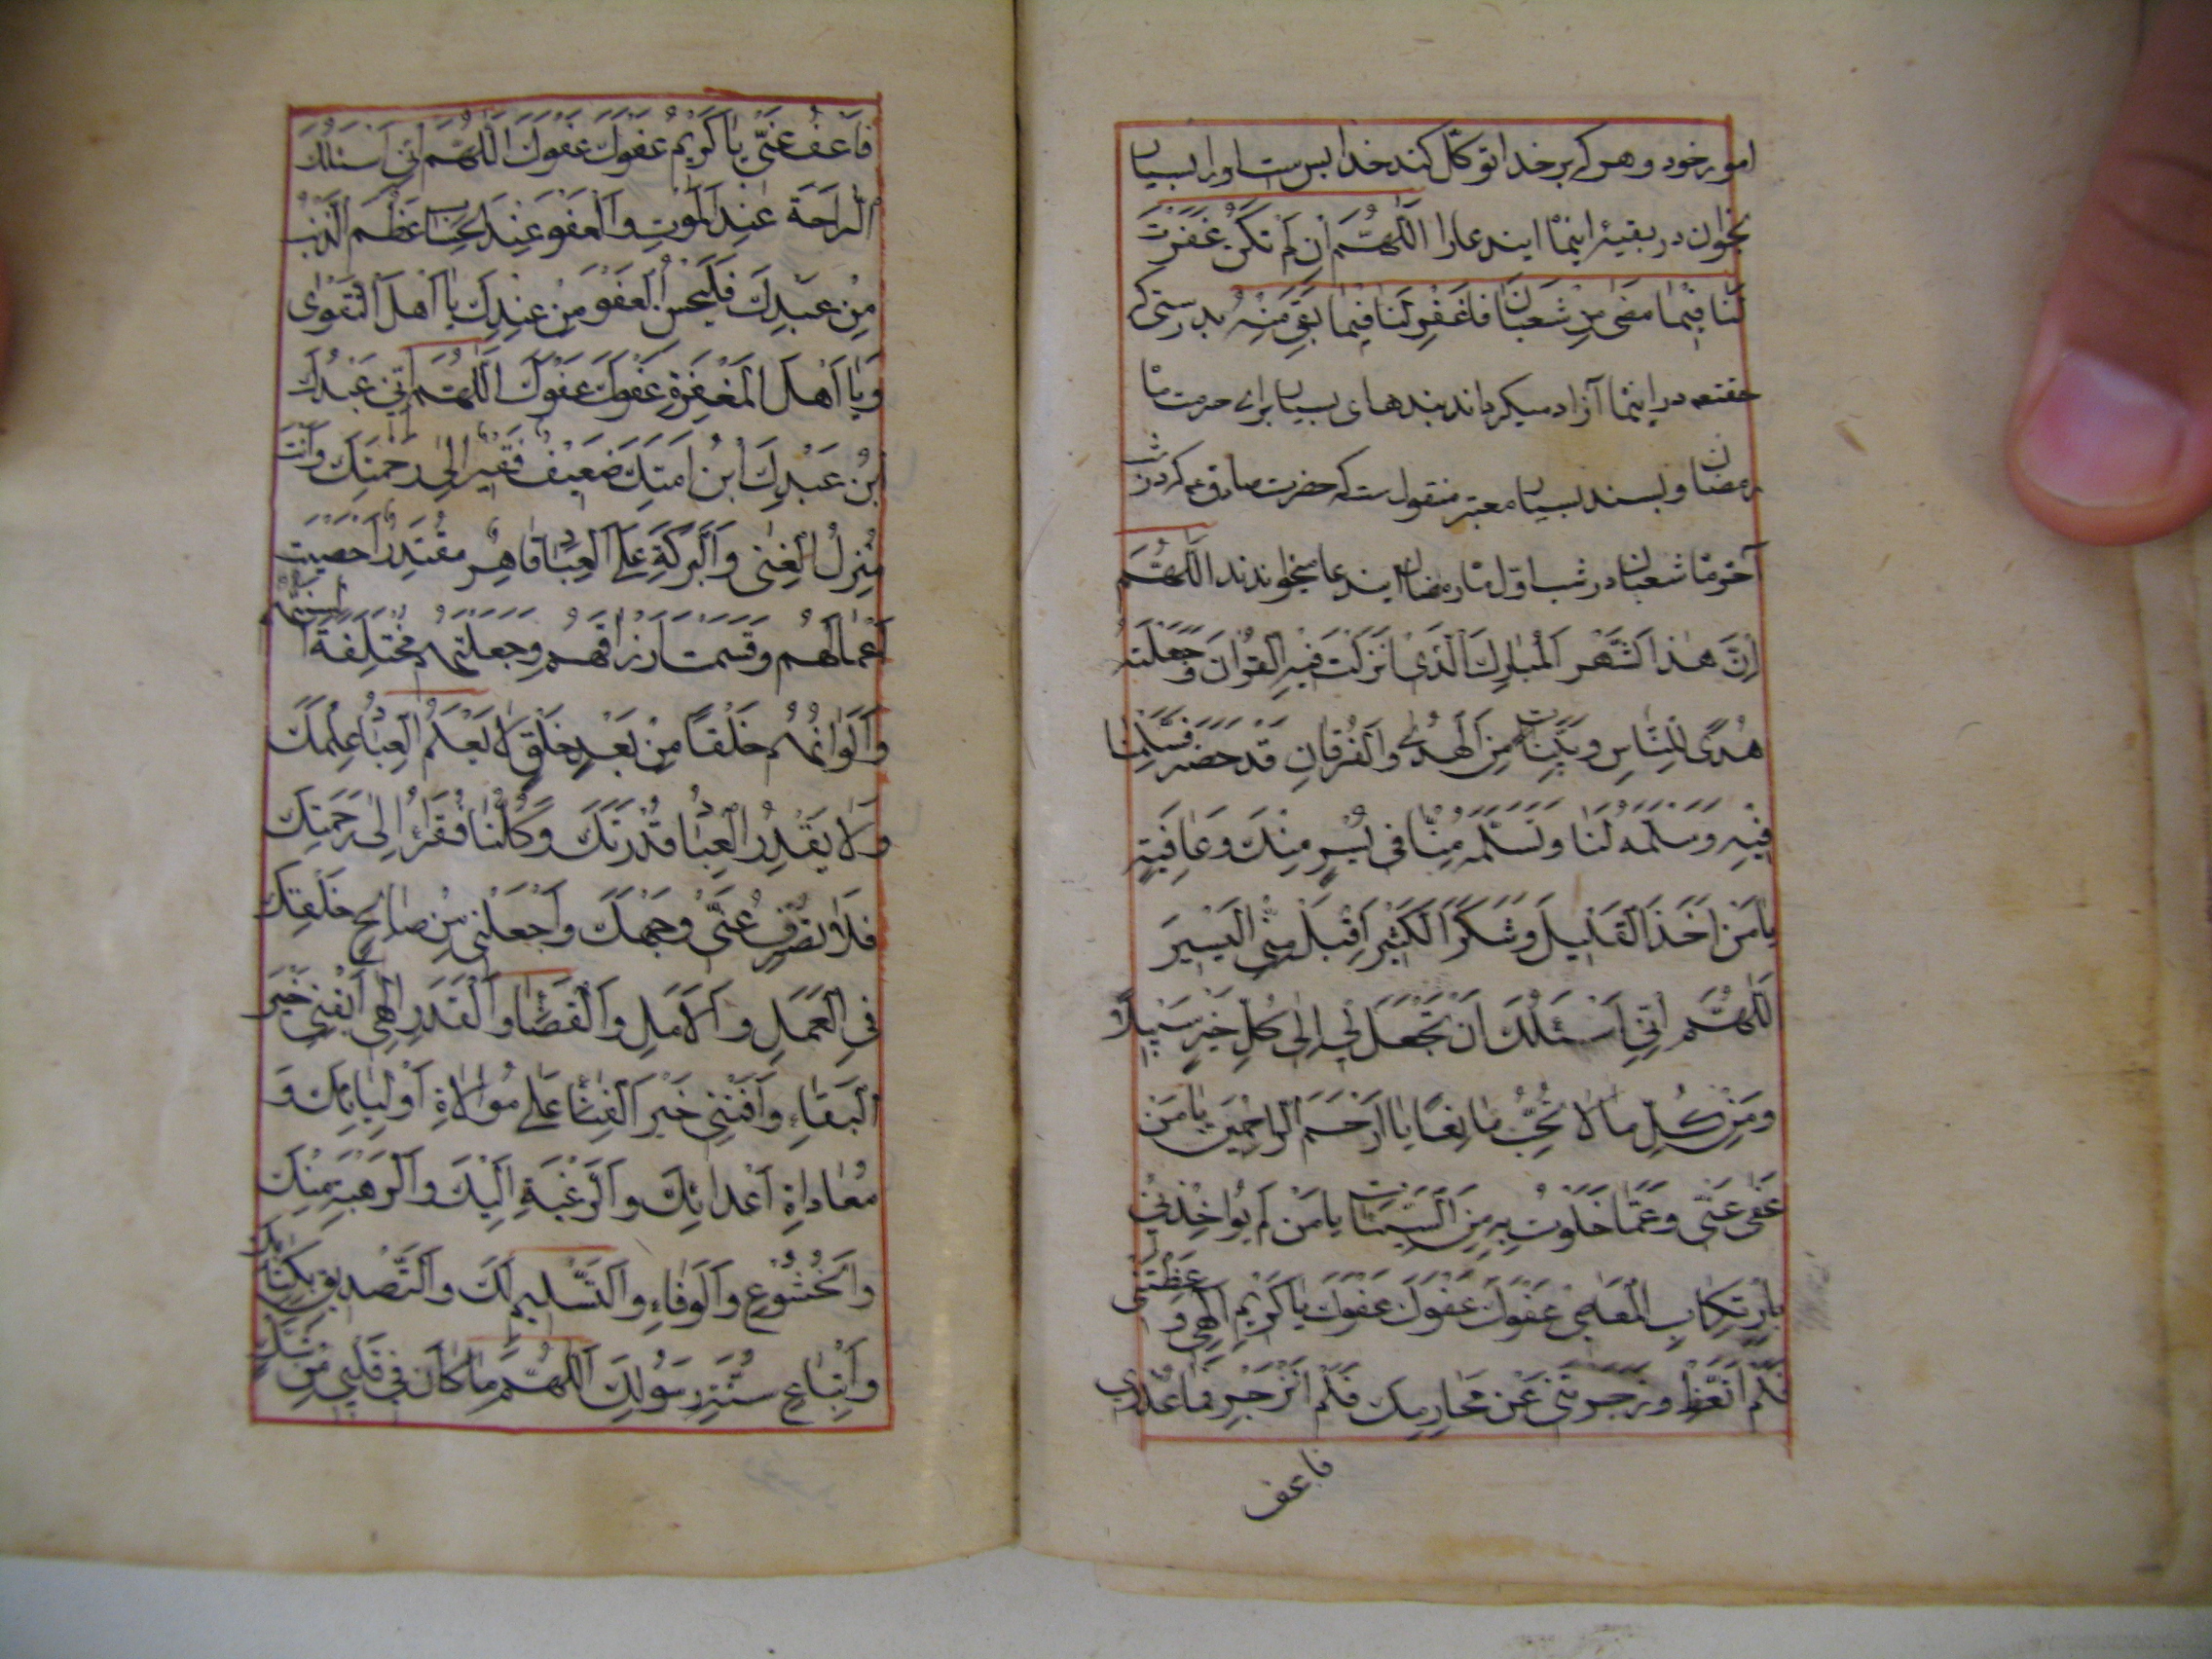 امور خود و هر که بر خدا توکل کند خدا بس است او را بسیار
بخوان در بقیهٔ اینما ایندعا را اَللّٰهُمَّ اِنْ لَمْ تَكُنْ غَفَرْتَ
لَنا فیما مَضیٰ مِنْ شَعْبانَ فَاغْفِرْ لَنا فیما بَقِیَ مِنْهُ بدرستی که
حقتعه در اینما آزاد میگرداند بندهای بسیار برای حرمت ما
رمضان و بسند بسیار معتبر منقولست که حضرت صادق ع که در شب
آخر ما شعبان در شب اول ما رمضان ایندعا میخواندند اَللّٰهُمَّ
اِنَّ هٰذَا الشَّهْرَ الْمُبارَكَ الَّذی اَنْزَلْتَ فیهِ الْقُرْانَ وَ جَعَلْتَهُ
هُدًی لِلنّاسِ وَ بَیِّناتٍ مِنَ الْهُدٰی وَالْفُرْقانِ قَدْ حَضَرَ فَسَلِّمْنا
فیهِ وَ سَلِّمْهُ لَنا وَ تَسَلَّمْهُ مِنّا فی یُسْرٍ مِنْكَ وَ عافِیَةٍ
یا مَنْ اَخَذَ الْقَلیلَ وَ شَكَرَ الْكَثیرَ اِقْبَلْ مِنِّی الْیَسیرَ
اَللّٰهُمَّ اِنّی اَسْئَلُكَ اَنْ تَجْعَلَ لی اِلٰی كُلِّ خَیْرٍ سَبیلاً
وَ مِنْ كُلِّ ما لا تُحِبُّ مانِعًا یا اَرْحَمَ الرّاحِمینَ یا مَنْ
عَفٰی عَنّی وَ عَمّا خَلَوْتُ بِهِ مِنَ السَّیِّئاتِ یا مَنْ لَمْ یُؤاخِذْنی
بِارْتِكابِ الْمَعاصی عَفْوَكَ عَفْوَكَ عَفْوَكَ یا كَریمُ اِلٰهی وَعَظْتَنی
فَلَمْ اَتَّعِظْ وَ زَجَرْتَنی عَنْ مَحارِمِكَ فَلَمْ اَنْزَجِرْ فَما عُذْری
فاعف
فَاعْفُ عَنّی یا كَریمُ عَفْوَكَ عَفْوَكَ اَللّٰهُمَّ اِنّی اَسْئَلُكَ
الرّاحَةَ عِنْدَ الْمَوْتِ وَالْعَفْوَ عِنْدَ الْحِسابِ عَظُمَ الذَّنْبُ
مِنْ عَبْدِكَ فَلْیَحْسُنِ الْعَفْوُ مِنْ عِنْدِكَ یا اَهْلَ التَّقْوٰی
وَ یا اَهْلَ الْمَغْفِرَةِ عَفْوَكَ عَفْوَكَ اَللّٰهُمَّ اِنّی عَبْدُكَ
ابْنُ عَبْدِكَ ابْنُ اَمَتِكَ ضَعیفٌ فَقیرٌ اِلٰی رَحْمَتِكَ وَ اَنْتَ
مُنْزِلُ الْغِنٰی وَالْبَرَكَةِ عَلَی الْعِبادِ قاهِرٌ مُقْتَدِرٌ اَحْصَیْتَ
اَعْمالَهُمْ وَ قَسَمْتَ اَرْزاقَهُمْ وَ جَعَلْتَهُمْ مُخْتَلِفَةً اَلْسِنَتُهُمْ
وَ اَلْوانُهُمْ خَلْقًا مِنْ بَعْدِ خَلْقٍ لا یَعْلَمُ الْعِبادُ عِلْمَكَ
وَ لا یَقْدِرُ الْعِبادُ قَدْرَتَكَ وَ كُلُّنا فُقَراءُ اِلٰی رَحْمَتِكَ
فَلا تَصْرِفْ عَنّی وَجْهَكَ وَاجْعَلْنی مِنْ صالِحِ خَلْقِكَ
فِی الْعَمَلِ وَالْاَمَلِ وَالْقَضاءِ وَالْقَدَرِ اِلٰهی اَبْقِنی خَیْرَ
الْبَقاءِ وَ اَفْنِنی خَیْرَ الْفَناءِ عَلٰی مُوالاةِ اَوْلِیائِكَ وَ
مُعاداةِ اَعْدائِكَ وَالرَّغْبَةِ اِلَیْكَ وَالرَّهْبَةِ مِنْكَ
وَالْخُشُوعِ وَالْوَفاءِ وَالتَّسْلیمِ لَكَ وَالتَّصْدیقِ بِكِتابِكَ
وَاتِّباعِ سُنَّةِ رَسُولِكَ اَللّٰهُمَّ ما كانَ فی قَلْبی مِنْ شَكٍّ